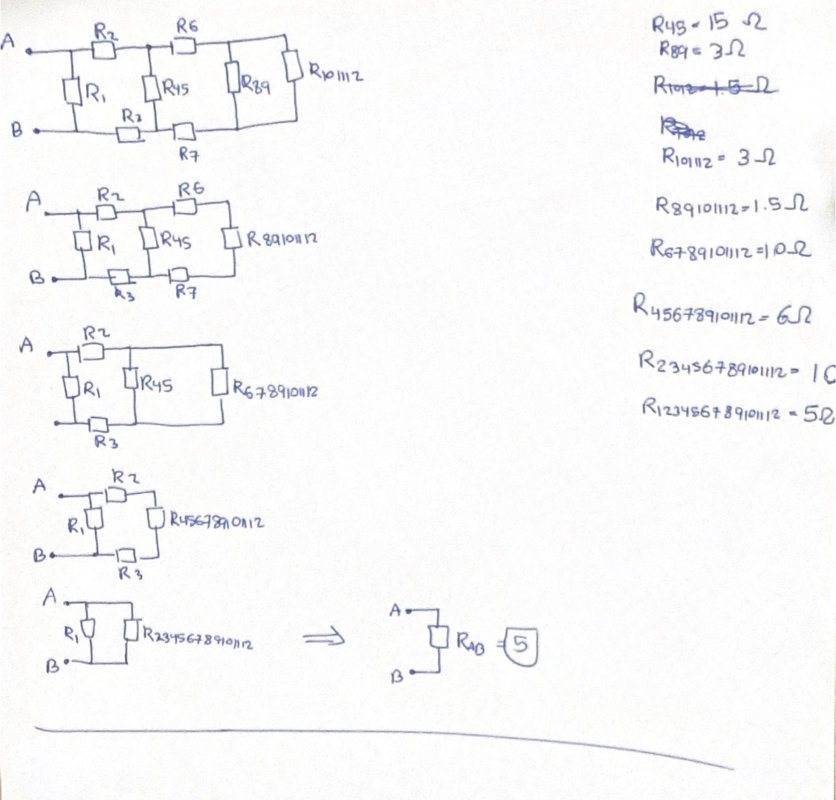 A
R2
R6
R1
R45
R89
R101112
B
R3
R7
A
R2
R6
R1
R45
R89101112
B
R3
R7
A
R2
R1
R45
R6789101112
R3
A
R2
R1
R456789101112
B
R3
A
R1
R23456789101112
B
⇒
A
RAB = 5
B
R45 = 15 Ω
R89 = 3Ω
R101112 = 3Ω
R89101112 = 1.5Ω
R6789101112 = 10Ω
R456789101112 = 6Ω
R23456789101112 = 10
R123456789101112 = 5Ω